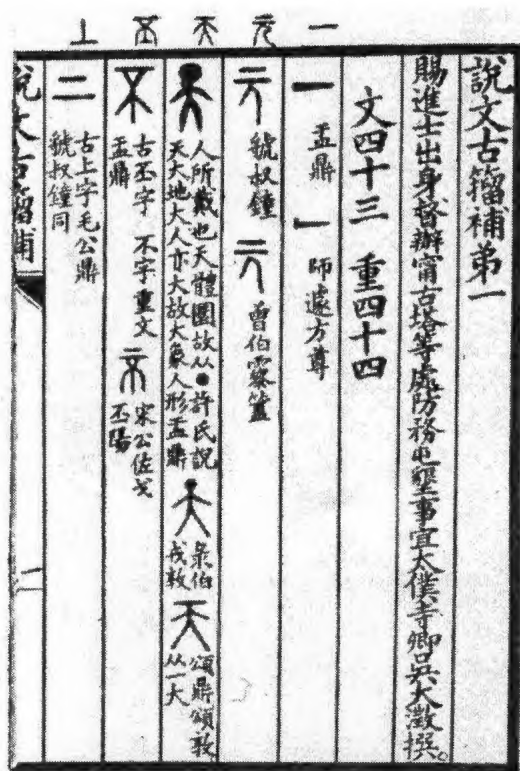 一 元 天 丕 上
說文古籀補第一
賜進士出身督辦甯古塔等處防務屯墾事宜太僕寺卿吳大澂撰。
文四十三 重四十四
一 盂鼎 一 師遽方尊
元 虢叔鐘 元 曾伯霥簠
天 人所戴也天體圜故从●許氏說天大地大人亦大故大象人形盂鼎 天 彔伯戎敦 天 頌鼎頌敦从一大
不 古丕字 不字重文盂鼎 不 宋公佐戈丕陽
二 古上字毛公鼎虢叔鐘同
說文古籀補 一